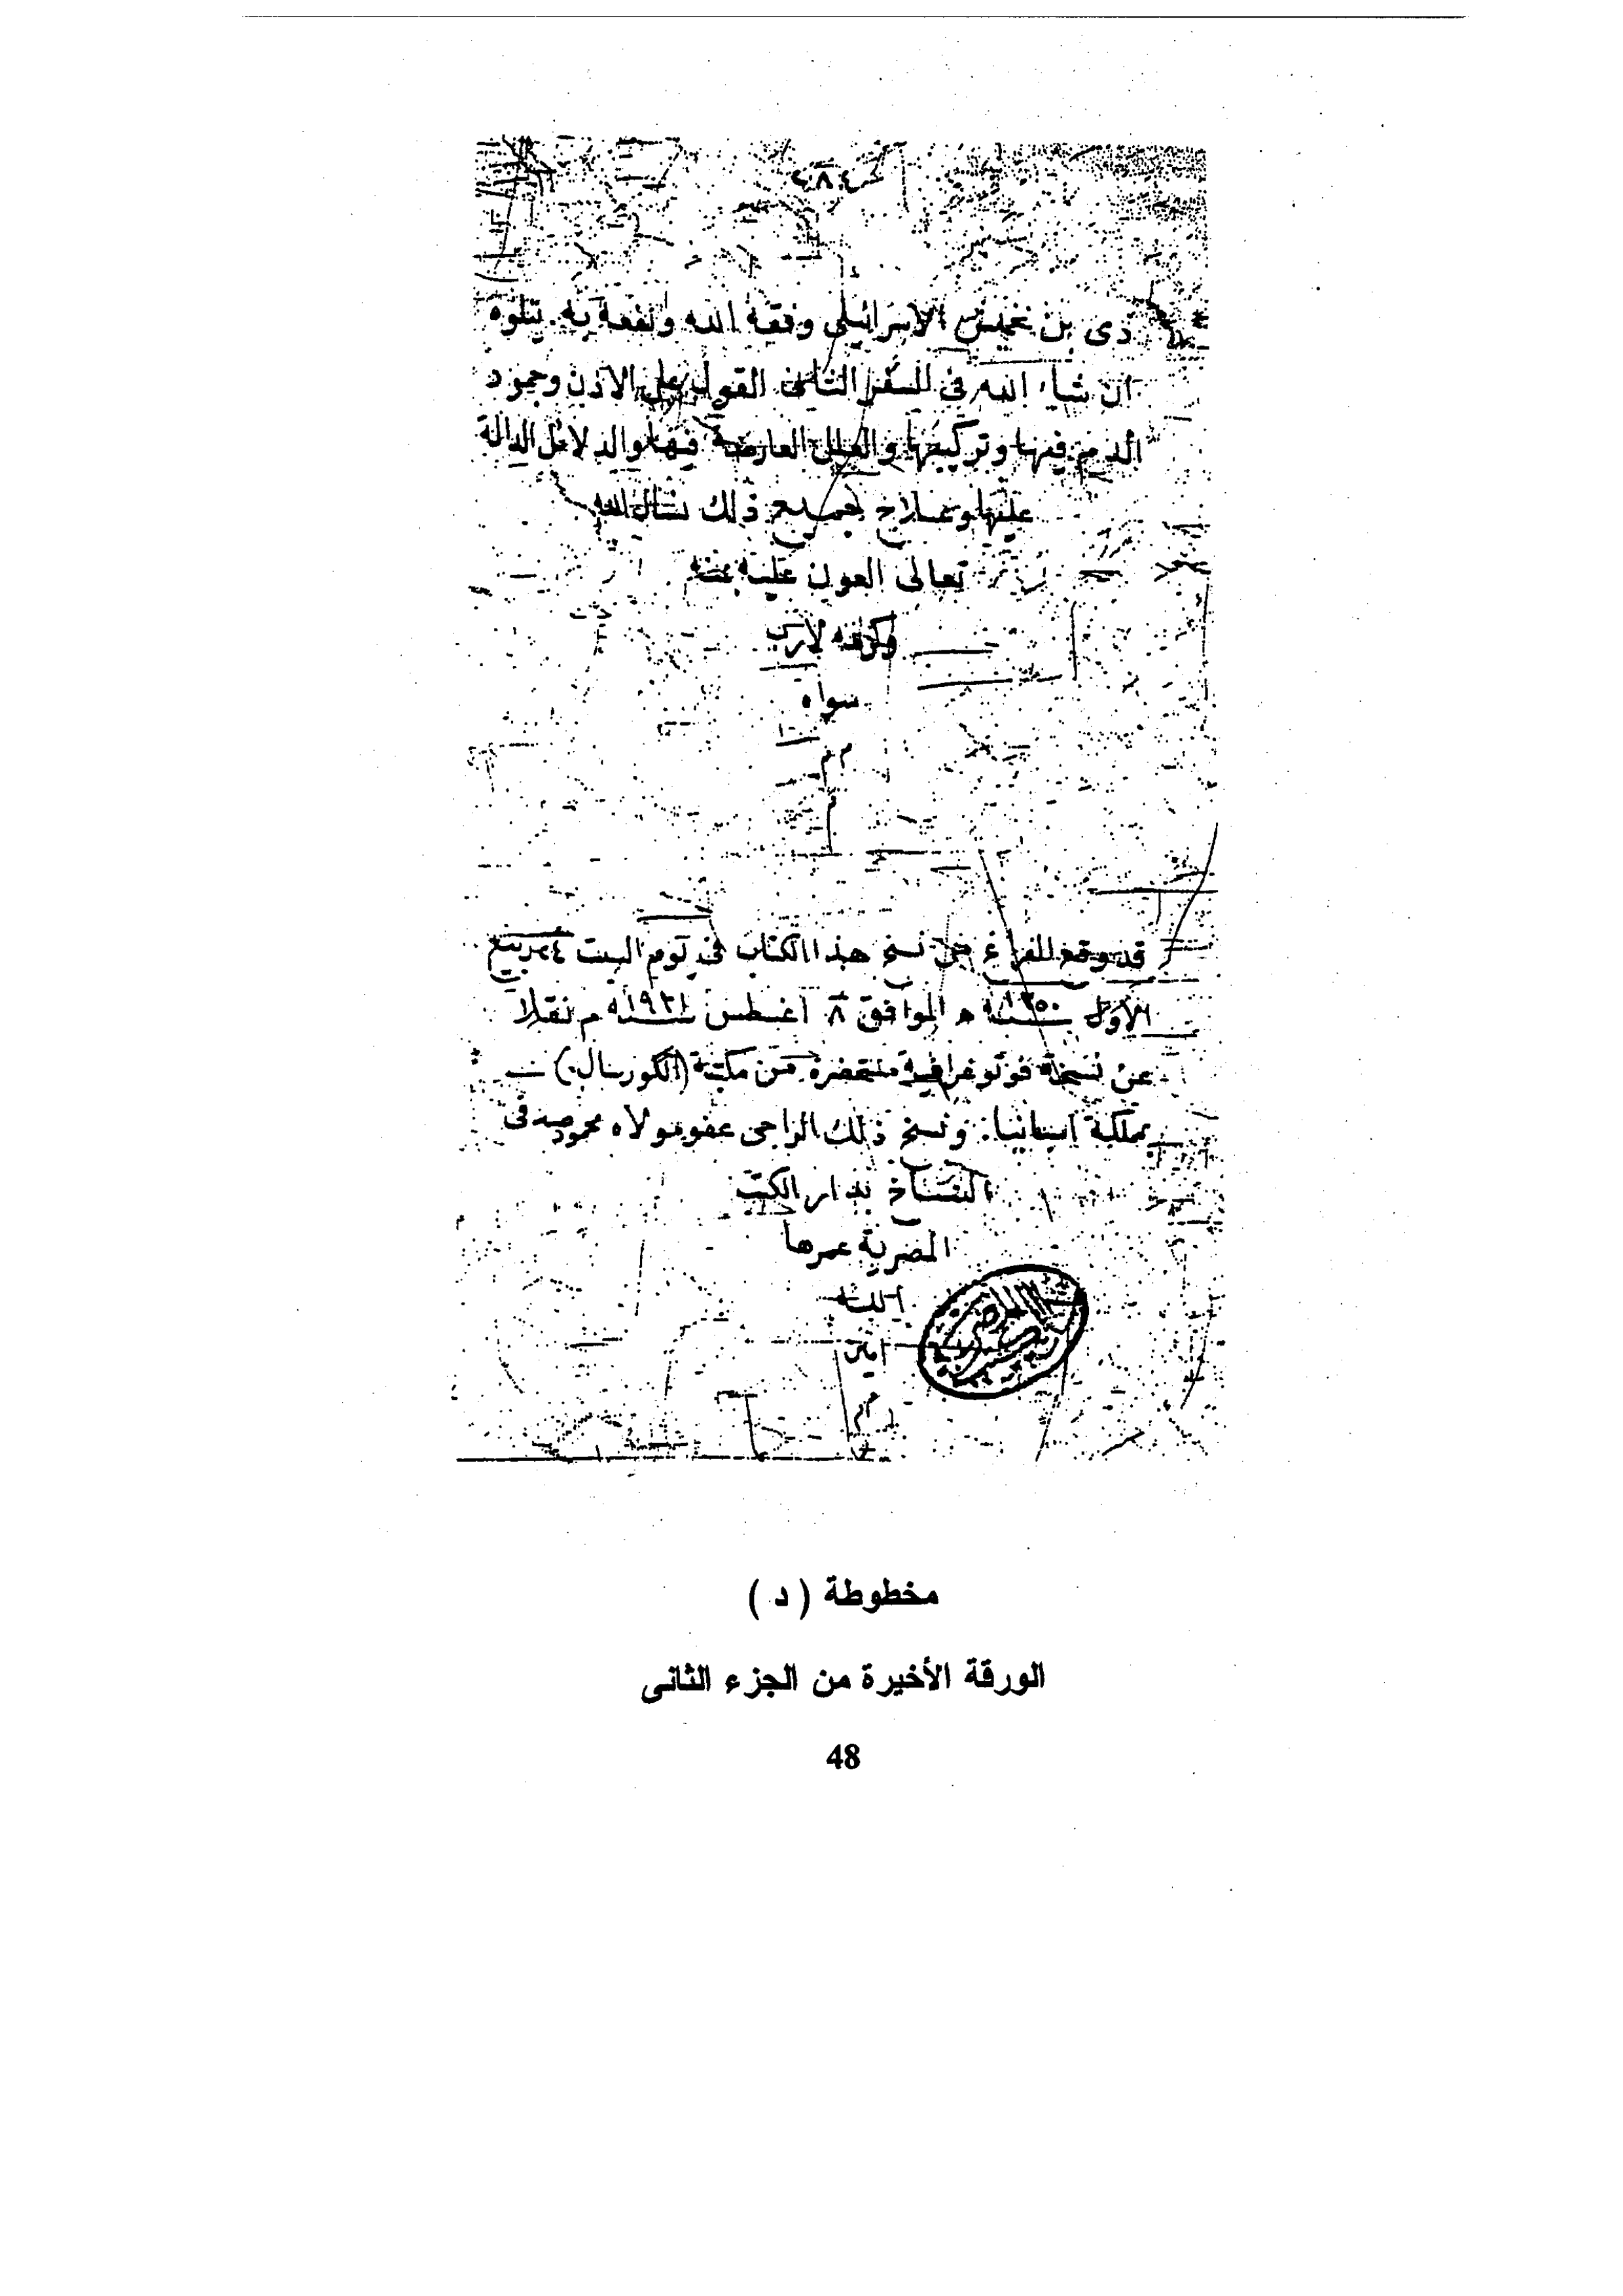 ٢٨٤
دى بن نحميس الاسرائيلى وفقه الله ونفعه به. يتلوه
ان شاء الله فى السفر الثالث القول على الاذن وجمود
الدم فيها وتركيبها والعلل العارضة فيها والدلائل الدالة
عليها وعلاج جميع ذلك نسأل الله
تعالى العون عليه بمنه
وكرمه لا رب
سواه
قد وقع الفراغ من نسخ هذا الكتاب فى يوم السبت ٢٤ ربيع
الأول سنة ١٣٥٠ ه الموافق ٨ اغسطس سنة ١٩٣١ م نقلا
عن نسخة فوتوغرافية من مكتبة (الكوريال)
بمملكة اسبانيا. ونسخ ذلك الراجى عفو مولاه محمود صدقى
النساخ بدار الكتب
المصرية عمرها
الله
امين
مخطوطة (د)
الورقة الأخيرة من الجزء الثانى
48